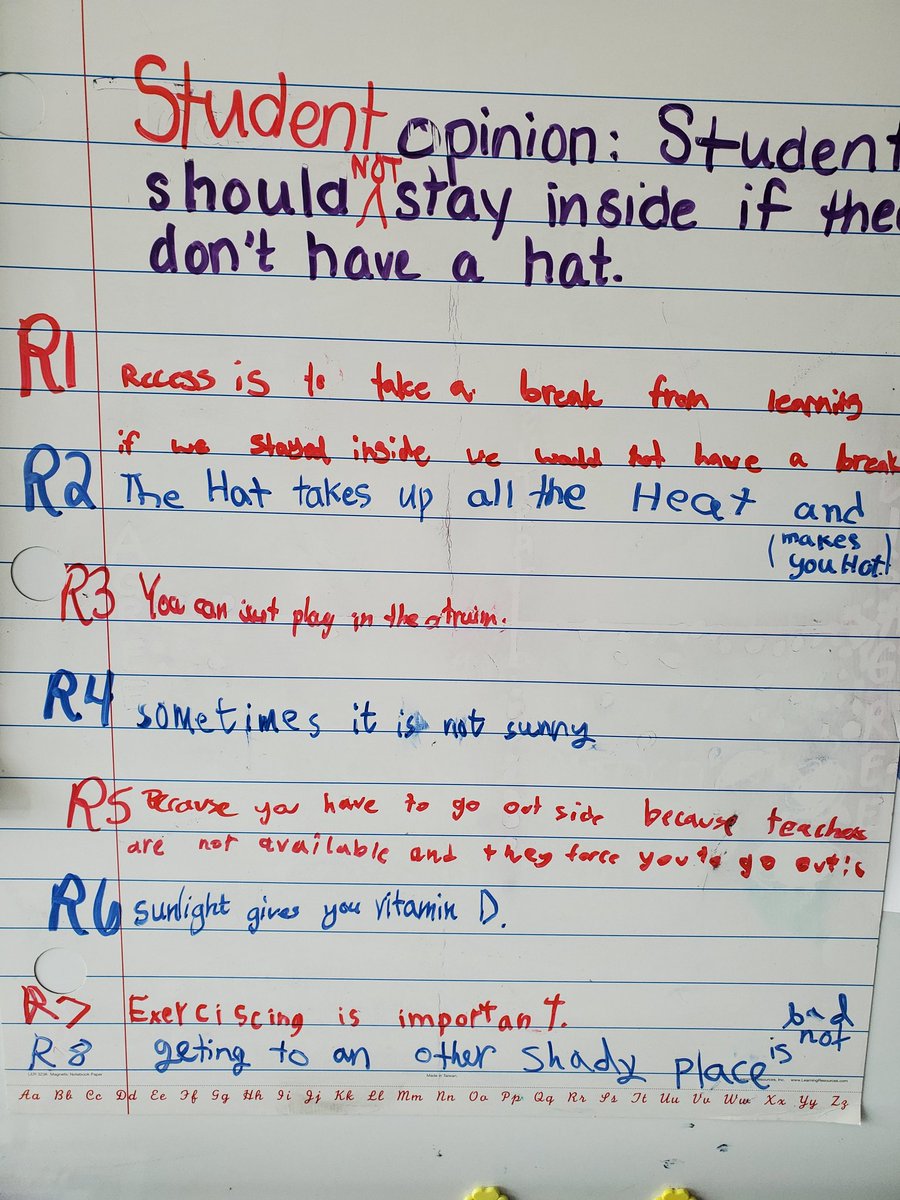 Student opinion: Student
should NOT stay inside if the
don't have a hat.
R1 Recess is to take a break from learning
if we stayed inside we would not have a break
R2 The Hat takes up all the Heat and
(makes
you Hot.)
R3 You can just play in the atruim.
R4 sometimes it is not sunny
R5 Because you have to go out side because teaches
are not available and they force you to go out
R6 sunlight gives you vitamin D.
R7 Exerciscing is important.
R8 geting to an other shady place is not bad
Made in Taiwan
www.LearningResources.com
Aa Bb Cc Dd Ee Ff Gg Hh Ii Jj Kk Ll Mm Nn Oo Pp Qq Rr Ss Tt Uu Vv Ww Xx Yy Zz